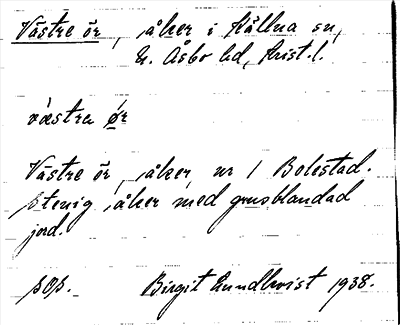 Västre ör, åker i Källna sn,
N. Åsbo hd, Krist. l.
västra ør
Västre ör, åker, nr 1 Bolestad.
Stenig åker med grusblandad
jord.
Birgit Lundkvist 1938.